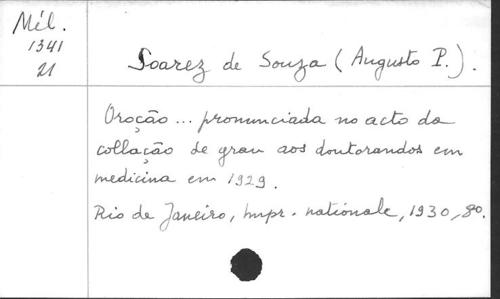 Mél.
1341
21
Soarez de Souza (Augusto P.).
Oroção ... pronunciada no acto da
collação de grau aos doutorandos em
medicina em 1929.
Rio de Janeiro, Impr. nationale, 1930, 8º.